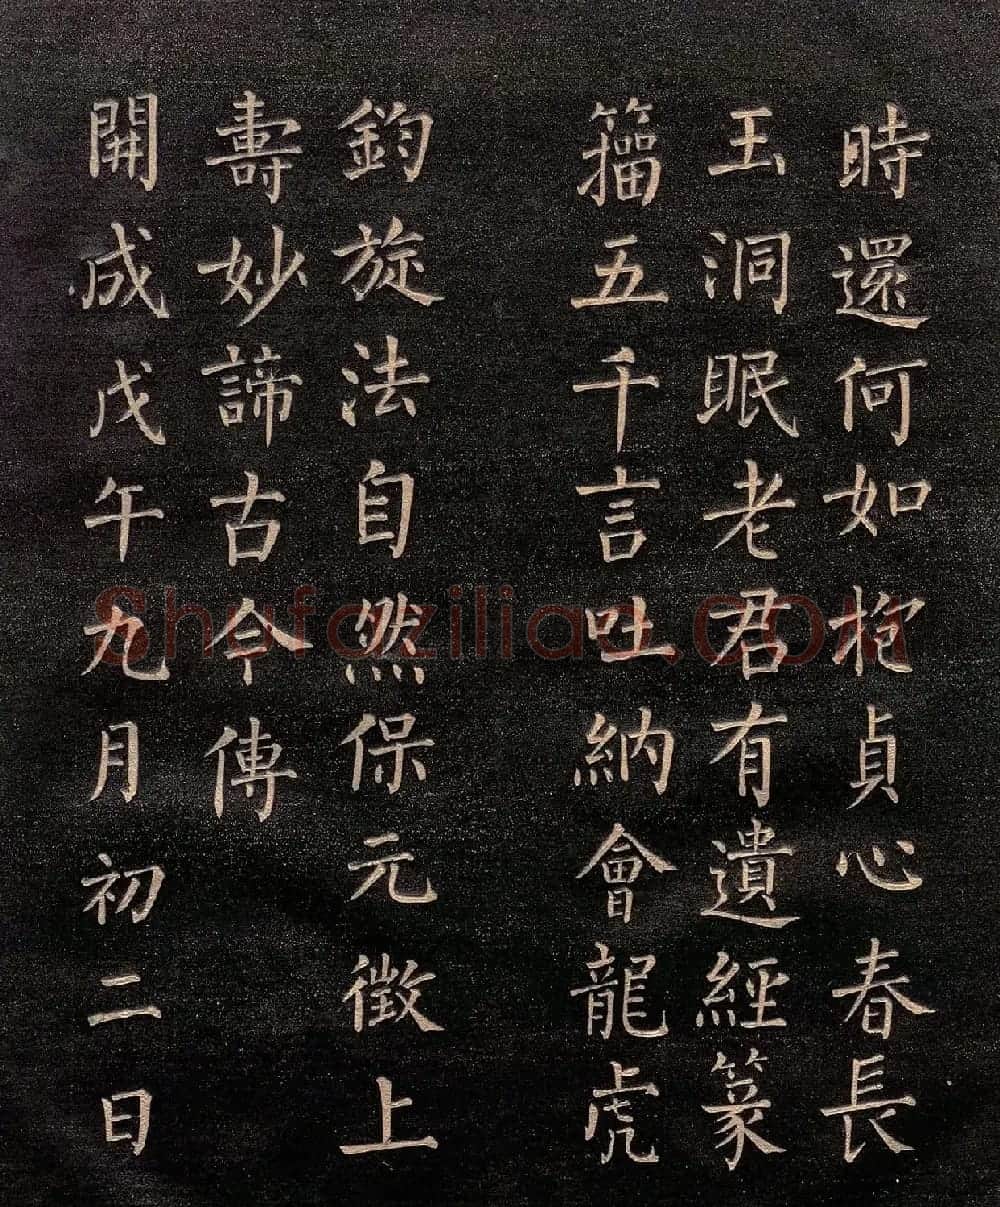 時還何如抱貞心春長
玉洞眠老君有遺經篆
籀五千言吐納會龍虎
鈞旋法自然保元徵上
壽妙諦古今傳
開成戊午九月初二日
Shufaziliao.com